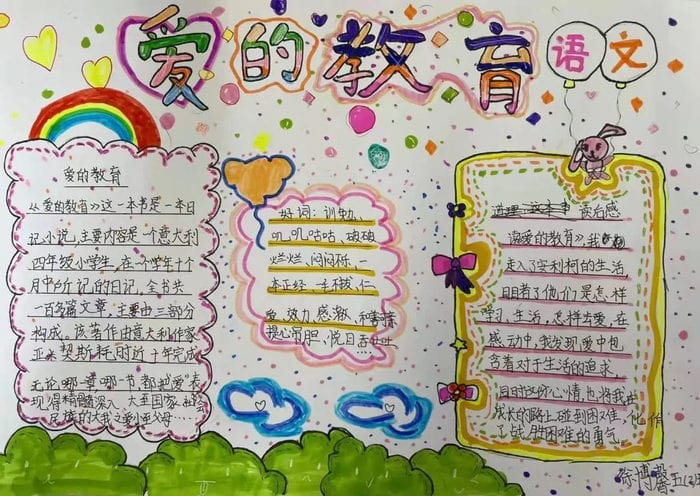 爱的教育
语文
爱的教育
《爱的教育》这一本书是一本日
记小说,主要内容是一个意大利
四年级小学生,在一个学年十个
月中所记的日记,全书共
一百多篇文章,主要由三部分
构成。该著作由意大利作家
亚米契斯耗时近十年完成
无论哪一章哪一节,都把"爱"表
现得精髓深入、大至国家、社会
民族的大我之爱小至父母
好词:训勉、
叽叽咕咕、破破
烂烂、闷闷不乐、一
本正经、
效力、感激、
提心吊胆、
读后感
读《爱的教育》,我
走入了安利柯的生活,
目睹了他们是怎样
学习、生活,怎样去爱,在
感动中,我发现爱中包
含着对于生活的追求,
同时这份心情,也将我在
成长的路上碰到困难,化作
了战胜困难的勇气。
徐博馨 五(2)